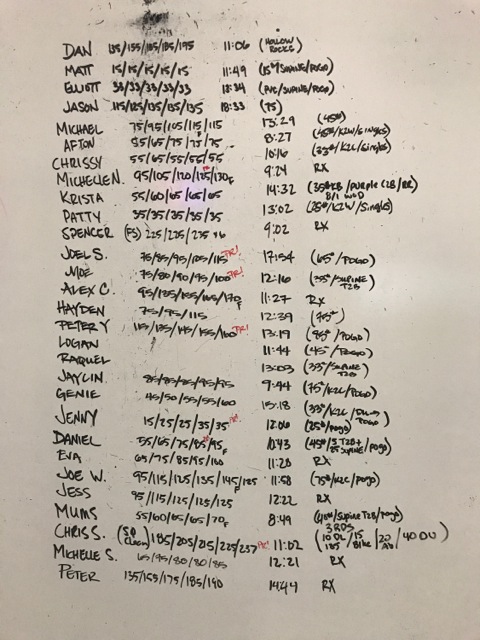 DAN 135/155/185/185/195 11:06 (HOLLOW ROCKS)
MATT 15/15/15/15/15 11:49 (15#/SUPINE/POGO)
ELLIOTT 33/33/33/33/33 18:34 (PVC/SUPINE/POGO)
JASON 115/125/135/135/135 18:33 (75)
MICHAEL 75/95/105/115/115 13:29 (45#)
AFTON 55/65/75/75/75 8:27 (45#/K2W/SINGLES)
CHRISSY 55/65/55/55/55 10:16 (33#/K2C/SINGLES)
MICHELLE N. 95/105/120/125/130F PR 9:24 RX
KRISTA 55/60/65/65/65 14:32 (35#KB/PURPLE (2B/RR) B/1 WOD
PATTY 35/35/35/35/35 13:02 (25#/K2W/SINGLES)
SPENCER (FS) 225/225/275 x6 9:02 RX
JOEL S. 75/85/95/105/115 PR! 17:54 (65#/POGO)
MOE 75/80/90/95/100 PR! 12:16 (35#/SUPINE T2B)
ALEX C. 95/135/155/165/170F 11:27 RX
HAYDEN 75/95/115 12:39 (75#)
PETER Y 115/135/145/155/160 PR! 13:19 (85#/POGO)
LOGAN 11:44 (45#/POGO)
RAQUEL 13:03 (33#/SUPINE T2B)
JAYLIN 85/85/85/95/95 9:44 (75#/K2C/POGO)
GENIE 45/50/55/55/60 15:18 (33#/K2C/POGO)
JENNY 15/25/25/35/35 PR 12:06 (25#/POGO)
DANIEL 55/65/75/85/95F PR 10:43 (45#/5 T2B+ 25 SUPINE/POGO)
EVA 65/75/85/95/100 11:28 RX
JOE W. 95/115/125/135/145/155F 11:58 (75#/K2C/POGO)
JESS 95/115/125/125/125 12:22 RX
MUMS 55/60/65/65/70F 8:49 (48#/SUPINE T2B/POGO)
CHRIS S. (SQ CLEAN) 185/205/215/225/237 PR! 11:02 (3 RDS 10 DL 185/15 BIKE/20 AB/40 DU)
MICHELLE S. 65/95/80/80/85 12:21 RX
PETER 135/155/175/185/190 14:44 RX